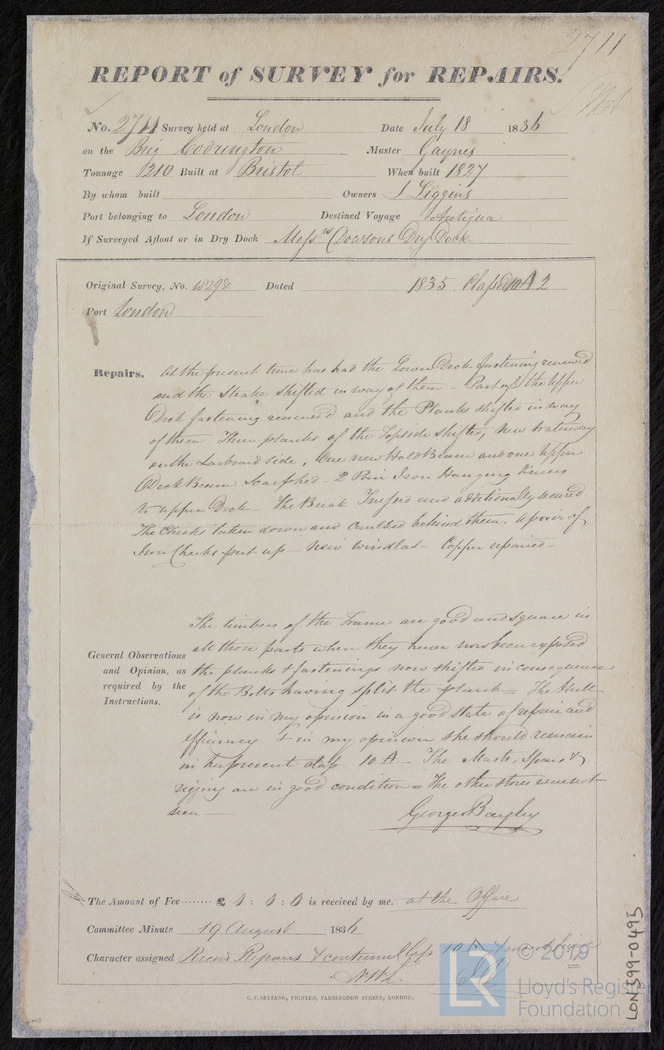 2711
REPORT of SURVEY for REPAIRS.
No. 2711 Survey held at London Date July 18 1836
on the Brig Codrington Master Gaynes
Tonnage 210 Built at Bristol When built 1827
By whom built Owners J Liggins
Port belonging to London Destined Voyage Antigua
If Surveyed Afloat or in Dry Dock Messrs Dowsons Dry Dock
Original Survey, No. Dated 1835. Class 10 A 2
Port London
Repairs. At the present time has had the Lower Deck fastening renewed
and the Strake shifted in way of them - Part of the Upper
Deck fastening renewed and the Planks shifted in way
of them Three planks of the Topside shifted, New Waterway
on the Larboard side, One new Hold Beam and one Upper
Deck Beam Scarfched - 2 Pair Iron Hanging Knees
to upper Deck - The Break and additionally secured
The Cheeks taken down and Caulked behind them. A pair of
Iron Cheeks put up - New Windlas - Copper repaired -
General Observations
and Opinion, as
required by the
Instructions.
The timbers of the Frame are good and square in
all those parts where they have now been exposed
the planks & fastenings now shifted in consequence
of the Bolts having split the plank = The Hull
is now in my opinion in a good state of repair and
efficiency & in my opinion she should remain
in her present class 10 A - The Masts, Spars &
rigging are in good condition = The other stores were not
seen -
George Bayley
The Amount of Fee £ 1 : 1 : 0 is received by me. at the Office
Committee Minute 19 August 1836
Character assigned Record Repairs & continued Class 10 A
C. F. SEYFANG, PRINTER, FARRINGDON STREET, LONDON.
LR
© 2019
Lloyd's Register
Foundation
LON599-0495